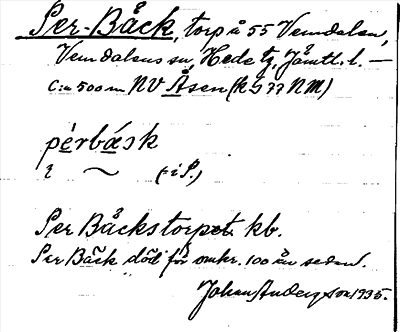 Per-Bäck, torp å 55 Vemdalen,
Vemdalens sn, Hede tg, Jämtl. l. —
C:a 500 m NV Åsen (k G 77 NM)
pèrbásk
(-i P.)
Per Bäckstorpet kb.
Per Bäck död för omkr. 100 år sedan.
Johan Anderson 1935.